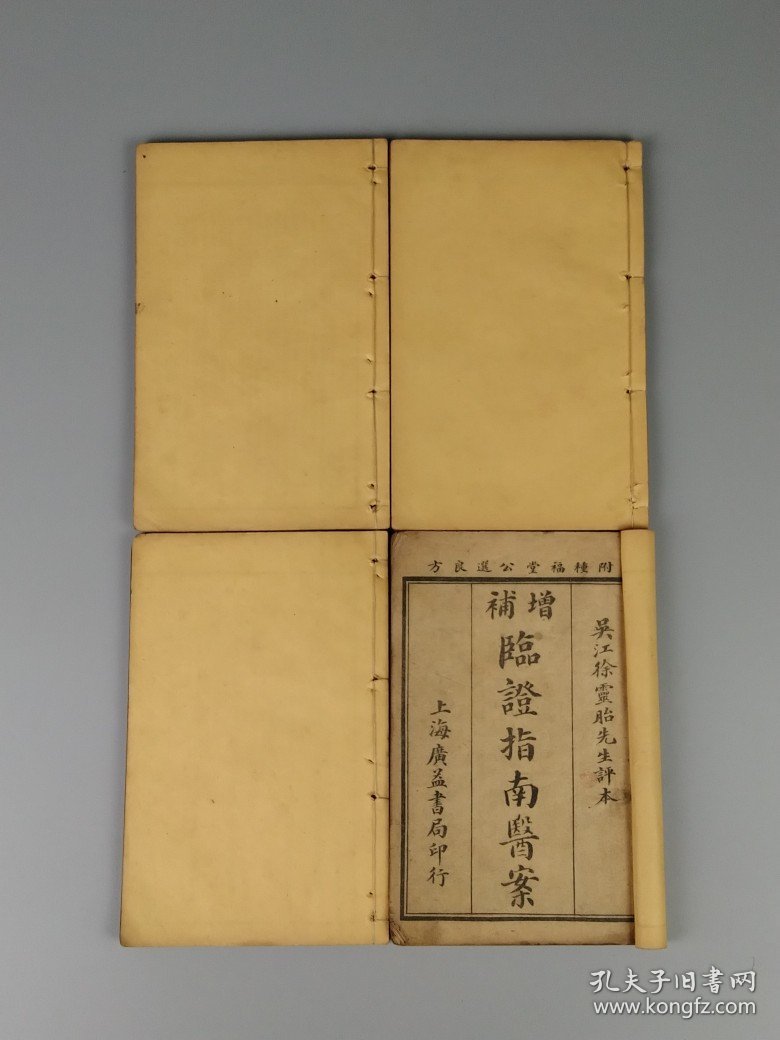 附種福堂公選良方
吳江徐靈胎先生評本
增補
臨證指南醫案
上海廣益書局印行
孔夫子旧书网
www.kongfz.com